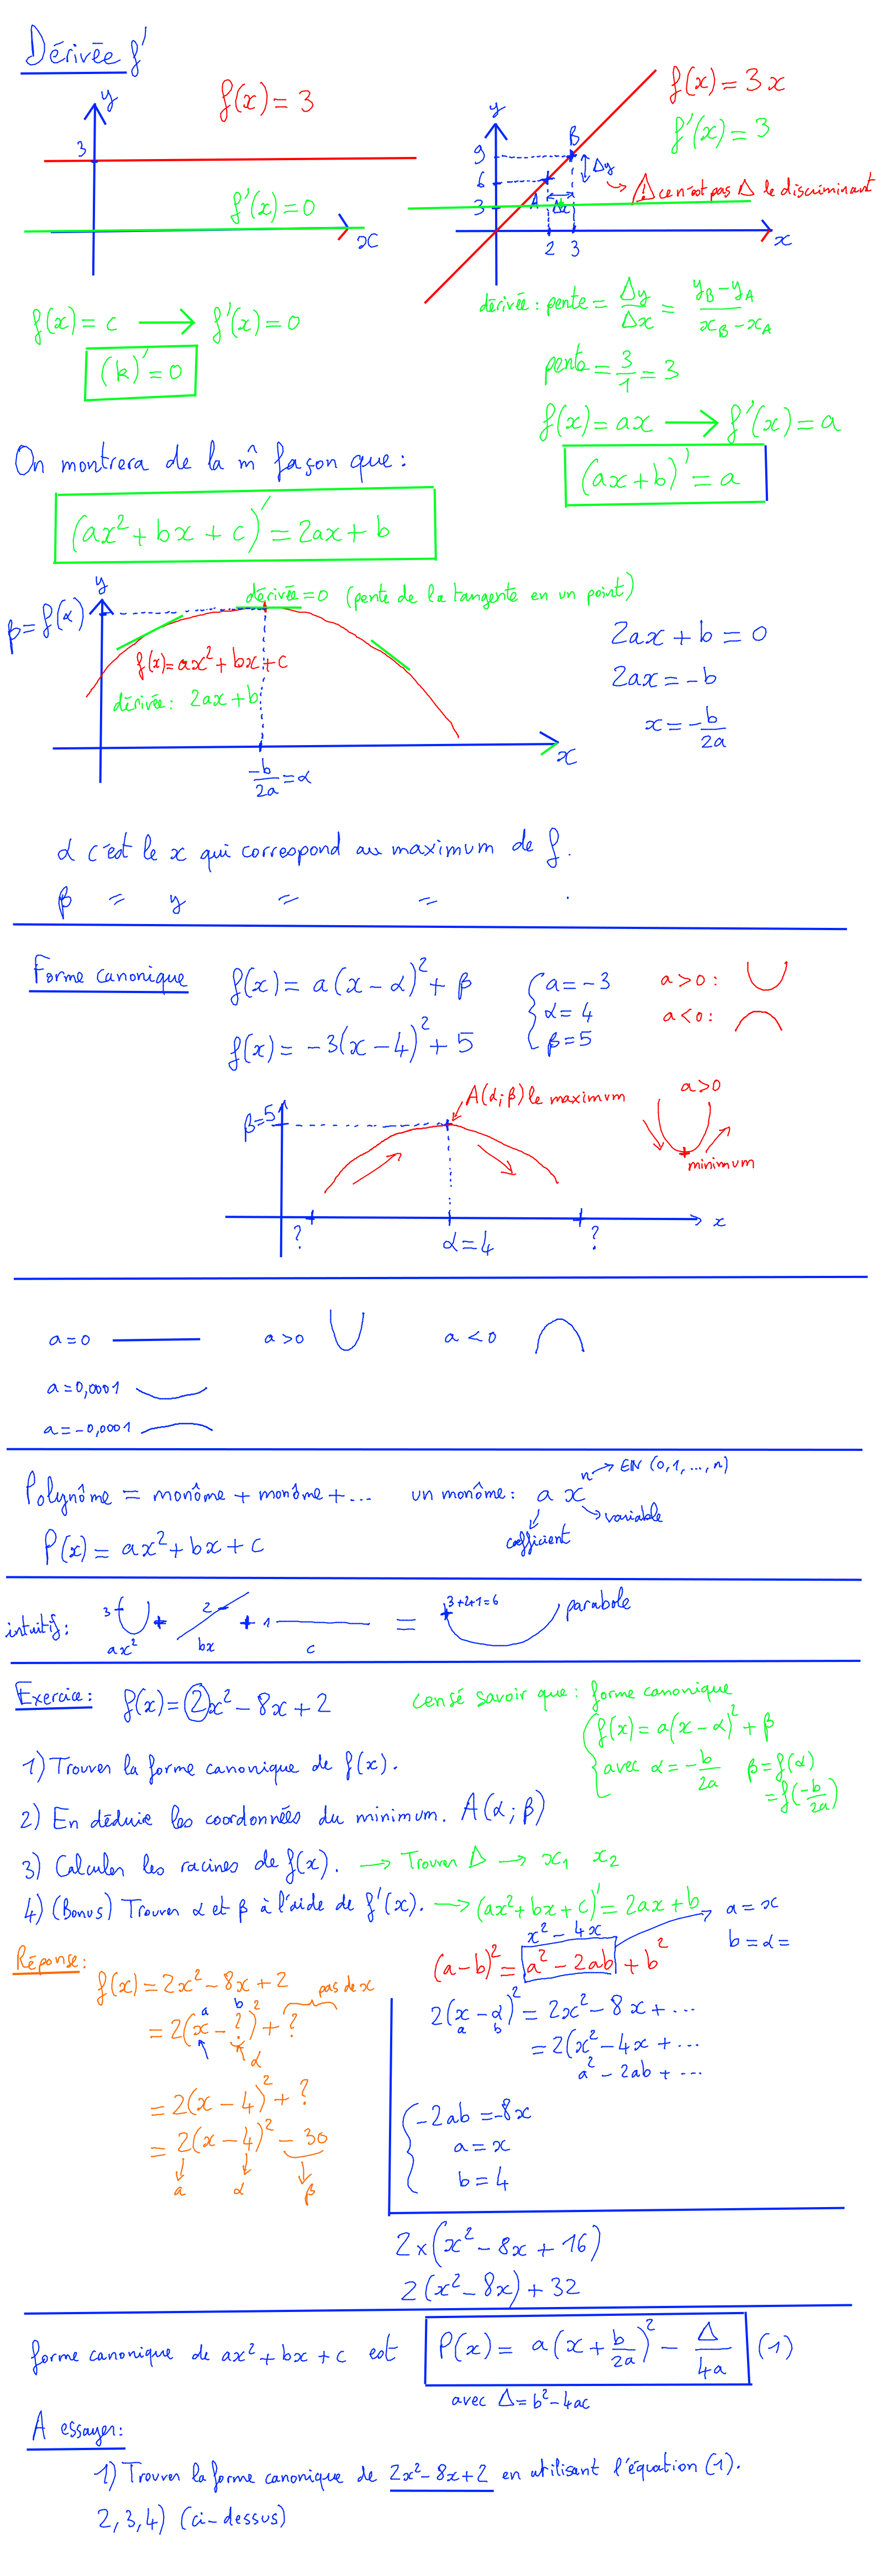 Dérivée f'
y
f(x) = 3
3
f'(x) = 0
x
f(x) = c → f'(x) = 0
(k)' = 0
f(x) = 3x
f'(x) = 3
y
9
6
3
B
A
Δy
Δx
⚠ ce n'est pas Δ le discriminant
2 3
x
dérivée : pente = Δy/Δx = (y_B − y_A)/(x_B − x_A)
pente = 3/1 = 3
f(x) = ax → f'(x) = a
(ax + b)' = a
On montrera de la m̂ façon que :
(ax² + bx + c)' = 2ax + b
y
β = f(α)
dérivée = 0 (pente de la tangente en un point)
f(x) = ax² + bx + c
dérivée : 2ax + b
-b/2a = α
x
2ax + b = 0
2ax = -b
x = -b/2a
α c'est le x qui correspond au maximum de f.
β = y = = .
Forme canonique
f(x) = a(x − α)² + β
f(x) = −3(x − 4)² + 5
{ a = −3
α = 4
β = 5
a > 0 :
a < 0 :
β = 5
A(α ; β) le maximum
a > 0
minimum
? α = 4 ?
x
a = 0 a > 0 a < 0
a = 0,0001
a = −0,0001
Polynôme = monôme + monôme + ... un monôme : a xⁿ → ∈ℕ (0, 1, ..., n)
coefficient
variable
P(x) = ax² + bx + c
intuitif : 3 + 2 + 1 = 3+2+1=6 parabole
ax² bx c
Exercice : f(x) = 2x² − 8x + 2
censé savoir que : forme canonique
{ f(x) = a(x − α)² + β
avec α = -b/2a β = f(α)
= f(-b/2a)
1) Trouver la forme canonique de f(x).
2) En déduire les coordonnées du minimum. A(α ; β)
3) Calculer les racines de f(x). → Trouver Δ → x₁ x₂
4) (Bonus) Trouver α et β à l'aide de f'(x). → (ax² + bx + c)' = 2ax + b
x² − 4x
(a − b)² = a² − 2ab + b²
a = x
b = α =
Réponse :
f(x) = 2x² − 8x + 2
pas de x
a b
= 2(x − ?)² + ?
α
= 2(x − 4)² + ?
= 2(x − 4)² − 30
a α β
2(x − α)² = 2x² − 8x + ...
a b
= 2(x² − 4x + ...
a² − 2ab + ...
{ −2ab = −8x
a = x
b = 4
2 × (x² − 8x + 16)
2(x² − 8x) + 32
forme canonique de ax² + bx + c est P(x) = a(x + b/2a)² − Δ/4a (1)
avec Δ = b² − 4ac
A essayer :
1) Trouver la forme canonique de 2x² − 8x + 2 en utilisant l'équation (1).
2, 3, 4) (ci-dessus)